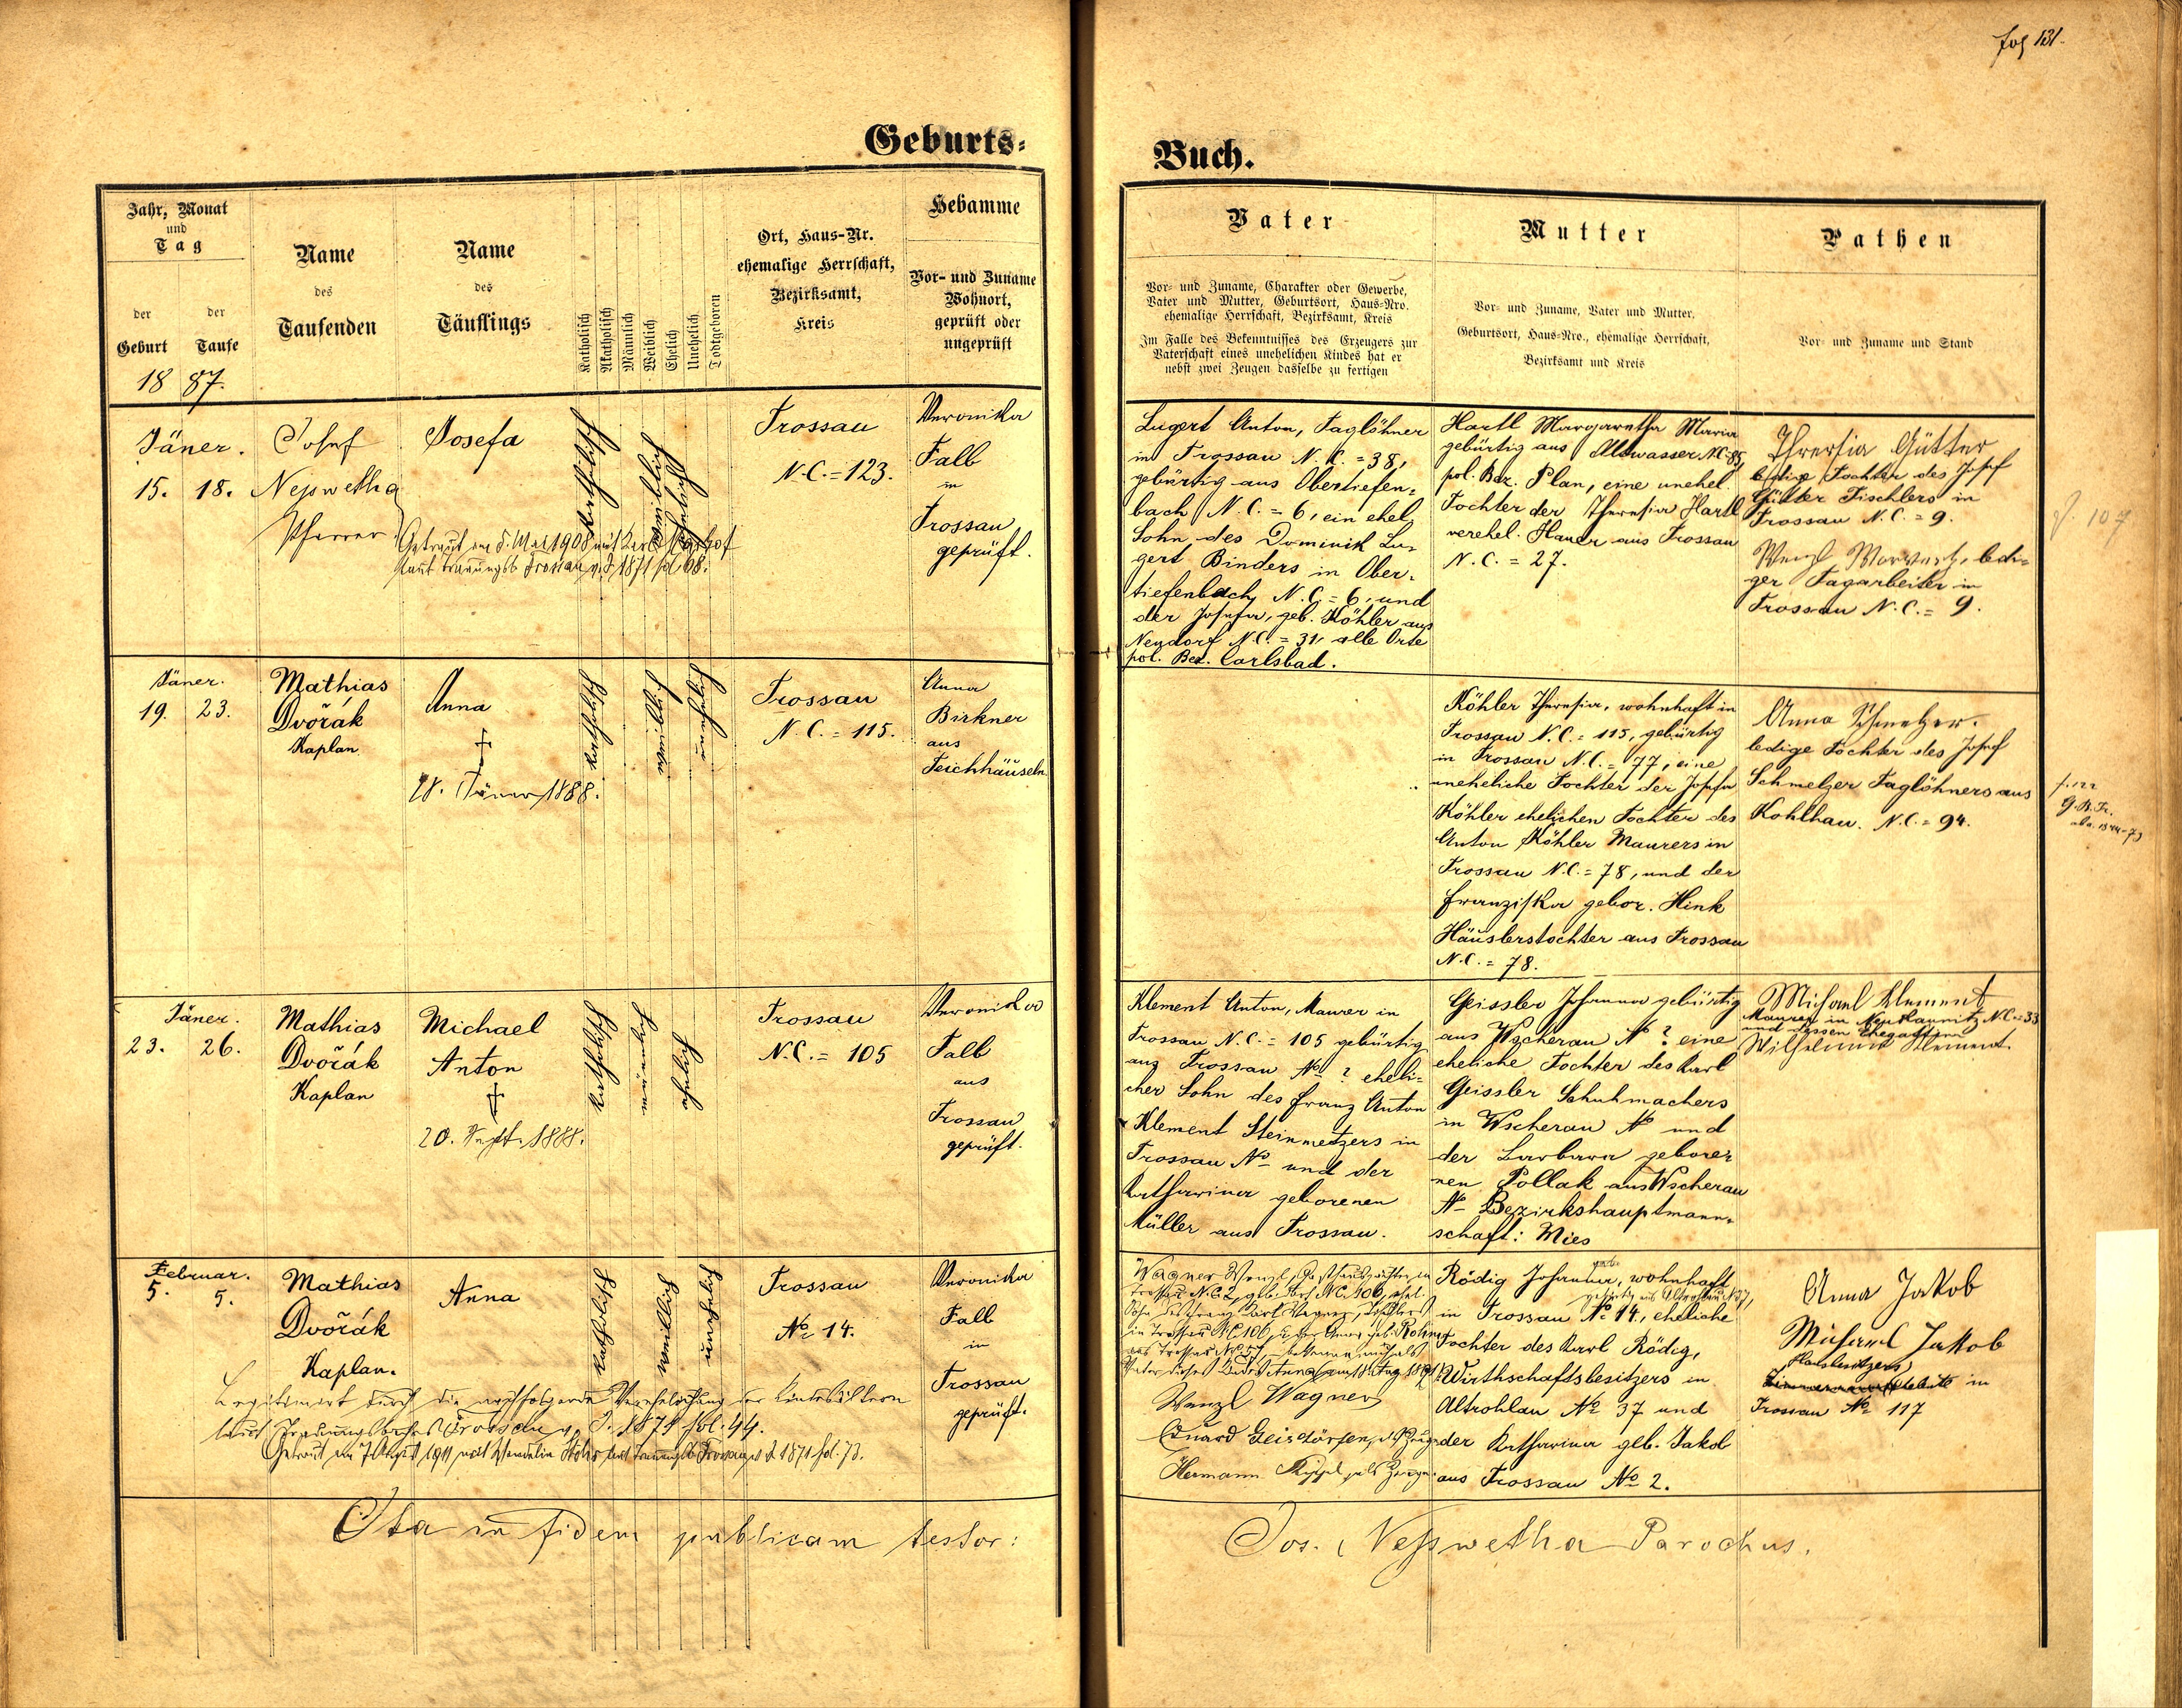 fol 131.
Geburts-
Buch.
Jahr, Monat
und
Tag
der
Geburt
der
Taufe
18 87.
Name
des
Taufenden
Name
des
Täuflings
Katholisch
Akatholisch
Männlich
Weiblich
Ehelich
Unehelich
Todtgeboren
Ort, Haus-Nr.
ehemalige Herrschaft,
Bezirksamt,
Kreis
Hebamme
Vor- und Zuname
Wohnort,
geprüft oder
ungeprüft
Vater
Vor- und Zuname, Charakter oder Gewerbe,
Vater und Mutter, Geburtsort, Haus-Nro.
ehemalige Herrschaft, Bezirksamt, Kreis
Im Falle des Bekenntnisses des Erzeugers zur
Vaterschaft eines unehelichen Kindes hat er
nebst zwei Zeugen dasselbe zu fertigen
Mutter
Vor- und Zuname, Vater und Mutter,
Geburtsort, Haus-Nro., ehemalige Herrschaft,
Bezirksamt und Kreis
Pathen
Vor- und Zuname und Stand
Jäner.
15. 18.
Josef
Nesswetha
Pfarrer
Josefa
Getraut am 5. Mai 1908 mit Karl
laut Trauungsb. Trossau v. J. 1871 fol. 68.
katholisch
weiblich
ehelich
Trossau
N.C. = 123.
Veronika
Falb
in
Trossau
geprüft.
Lugert Anton, Taglöhner
in Trossau N.C. = 38,
gebürtig aus Obertiefen-
bach N.C. = 6, ein ehel.
Sohn des Dominik Lu-
gert Binders in Ober-
tiefenbach N.C. = 6, und
der Josefa, geb. Köhler aus
Neudorf N.C. = 31, alle Orte
pol. Bez. Carlsbad.
Hartl Margaretha Maria
gebürtig aus Altwasser N.C. 85,
pol. Bez. Plan, eine unehel
Tochter der Theresia Hartl
verehel. Hauer aus Trossau
N.C. = 27.
Theresia Gütter
ledige Tochter des Josef
Gütter Tischlers in
Trossau N.C. = 9.
Wenzl ledi-
ger Tagarbeiter in
Trossau N.C. = 9.
f. 107
Jäner.
19. 23.
Mathias
Dvořák
Kaplan
Anna
†
28. Jäner 1888.
katholisch
weiblich
unehelich
Trossau
N.C. = 115.
Anna
Birkner
aus
Teichhäuseln
Köhler Theresia, wohnhaft in
Trossau N.C. = 115, gebürtig
in Trossau N.C. = 77, eine
uneheliche Tochter der Josefa
Köhler ehelichen Tochter des
Anton Köhler Maurers in
Trossau N.C. = 78, und der
Franziska gebor. Hink
Häuslerstochter aus Trossau
N.C. = 78.
Anna Schmelzer.
ledige Tochter des Josef
Schmelzer Taglöhners aus
Kohlhau. N.C. = 94.
Jäner.
23. 26.
Mathias
Dvořák
Kaplan
Michael
Anton
†
20. Sept. 1888.
katholisch
männlich
ehelich
Trossau
N.C. = 105
Veronika
Falb
aus
Trossau
geprüft.
Klement Anton, Maurer in
Trossau N.C. = 105 gebürtig
aus Trossau No ? eheli-
cher Sohn des Franz Anton
Klement Steinmetzers in
Trossau No und der
Katharina geborenen
Müller aus Trossau.
Geissler Johanna gebürtig
aus Wscherau No ? eine
eheliche Tochter des Karl
Geissler Schuhmachers
in Wscherau No und
der Barbara gebore-
nen Pollak aus Wscherau
No Bezirkshauptmann-
schaft: Mies
Michael Klement
Maurer in Neu Kaunitz N.C. = 33
und dessen Ehegattin
Wilhelmine Klement.
Februar.
5. 5.
Mathias
Dvořák
Kaplan.
Anna
katholisch
weiblich
unehelich
Trossau
No 14.
Veronika
Falb
in
Trossau
geprüft.
Legitimirt durch die nachfolgende Verehelichung der Kindeseltern
laut Trauungsbuches Trossau v. J. 1871 fol. 44.
Getraut am 7 August 1911 mit Wendelin laut Trauungsb. Trossau v. J. 1871 fol. 73.
Wagner Wenzl, Gasthauspächter in
Trossau N.C. 2, geb. dort N.C. 106, ehel.
Sohn des Franz Karl Wagner, Tischlers
in Trossau N.C. 106, u. der Anna geb. Rohm
aus Trossau N.C. 57, bekenne mich als
Vater dieses Kindes Anna
Wenzl Wagner
Eduard Geisdörfer, als Zeuge
Hermann als Zeuge.
Rödig Johanna, wohnhaft
gebürtig aus Altrohlau N. 37,
in Trossau No 14, eheliche
Tochter des Karl Rödig,
Wirthschaftsbesitzers in
Altrohlau No 37 und
der Katharina geb. Jakob
aus Trossau No 2.
Anna Jakob
Michael Jakob
Hausbesitzers
in
Trossau No 117
Ita in fidem publicam testor:
Jos. Nesswetha Parochus.